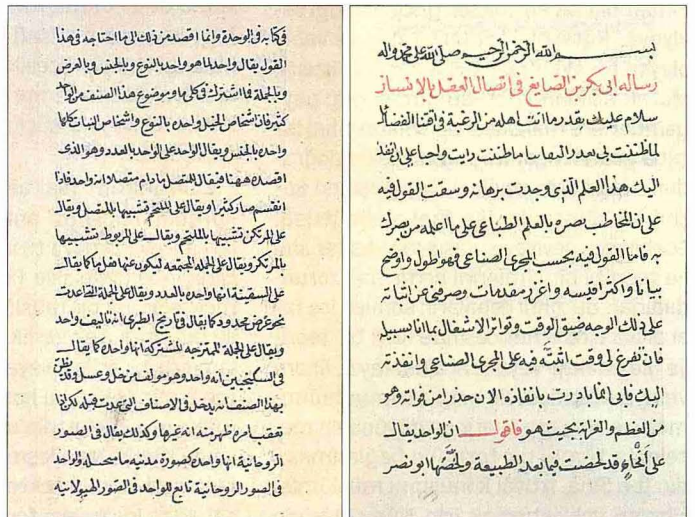 بسم الله الرحمن الرحيم صلى الله على محمد واله
رساله ابى بكر بن الصايغ فى اتصال العقل بالانسان
سلام عليك بقدر ما انت اهله من الرغبة واقتنا الفضائل
لما ظننت لى بعد الـتقا ما ظننت رايت واجبا على ان انفذ
اليك هذا العلم الذى وجدت برهانه وسقت القول فيه
على ان المخاطب بصره بالعلم الطباعى على ما اعلمه من بصرك
به فاما القول فيه بحسب المجرى الصناعى فهو طول واوضح
بيانا واكثر اقيسه واغزر مقدمات وصرفنى عن اثباته
على ذلك الوجه ضيق الوقت وتواتر الاشغال بما انا سبيل
فان تفرغ لى وقت اثبته فيه على المجرى الصناعى وانفذته
اليك فانى انما بادرت بانفاذه الان حذرا من فواته وهو
من العظم والغرابة بحيث هو فاقول ان الواحد يقال
على انحاء قد لخصت فيما بعد الطبيعه ولخصها ابو نصر
فى كتابه فى الوحدة وانما اقصد من ذلك الى ما احتاج به فى هذا
القول يقال واحد لما هو واحد بالنوع وبالجنس وبالعرض
وبالجملة فما اشترك فى كلى ما وموضوع هذا الصنف من
كثير فان اشخاص الخيل واحدة بالنوع واشخاص النبات كلها
واحدة بالجنس ويقال الواحد على الواحد بالعدد وهو الذى
اقصده ههنا فيقال للمتصل ما دام متصلا انه واحد فاذا
انقسم صار كثيرا ويقال على الملتحم تشبيها بالمتصل ويقال
على المرتكز تشبيها بالملتحم ويقال على المربوط تشبيها
بالمرتكز ويقال على الجملة المجتمعه ليكون عنها فعل ما كما يقال
على السفينة انها واحدة بالعدد ويقال على الجملة
نحو غرض محدود كما يقال فى تاريخ الطبرى انه تاليف واحد
ويقال على الجملة الممتزجه المشتركة انها واحدة كما يقال
فى السكنجبين انه واحد وهو مولف من خل وعسل وقد يظن
بهذا الصنف انه يدخل فى الاصناف التى قبله لكن اذا
تعقب امره ظهر منه انه غيرها وكذلك يقال فى الصور
الروحانية انها واحدة كصورة مدينه ما متخيله والواحد
فى الصور الروحانية تابع للواحد فى الصور الهيولانيه